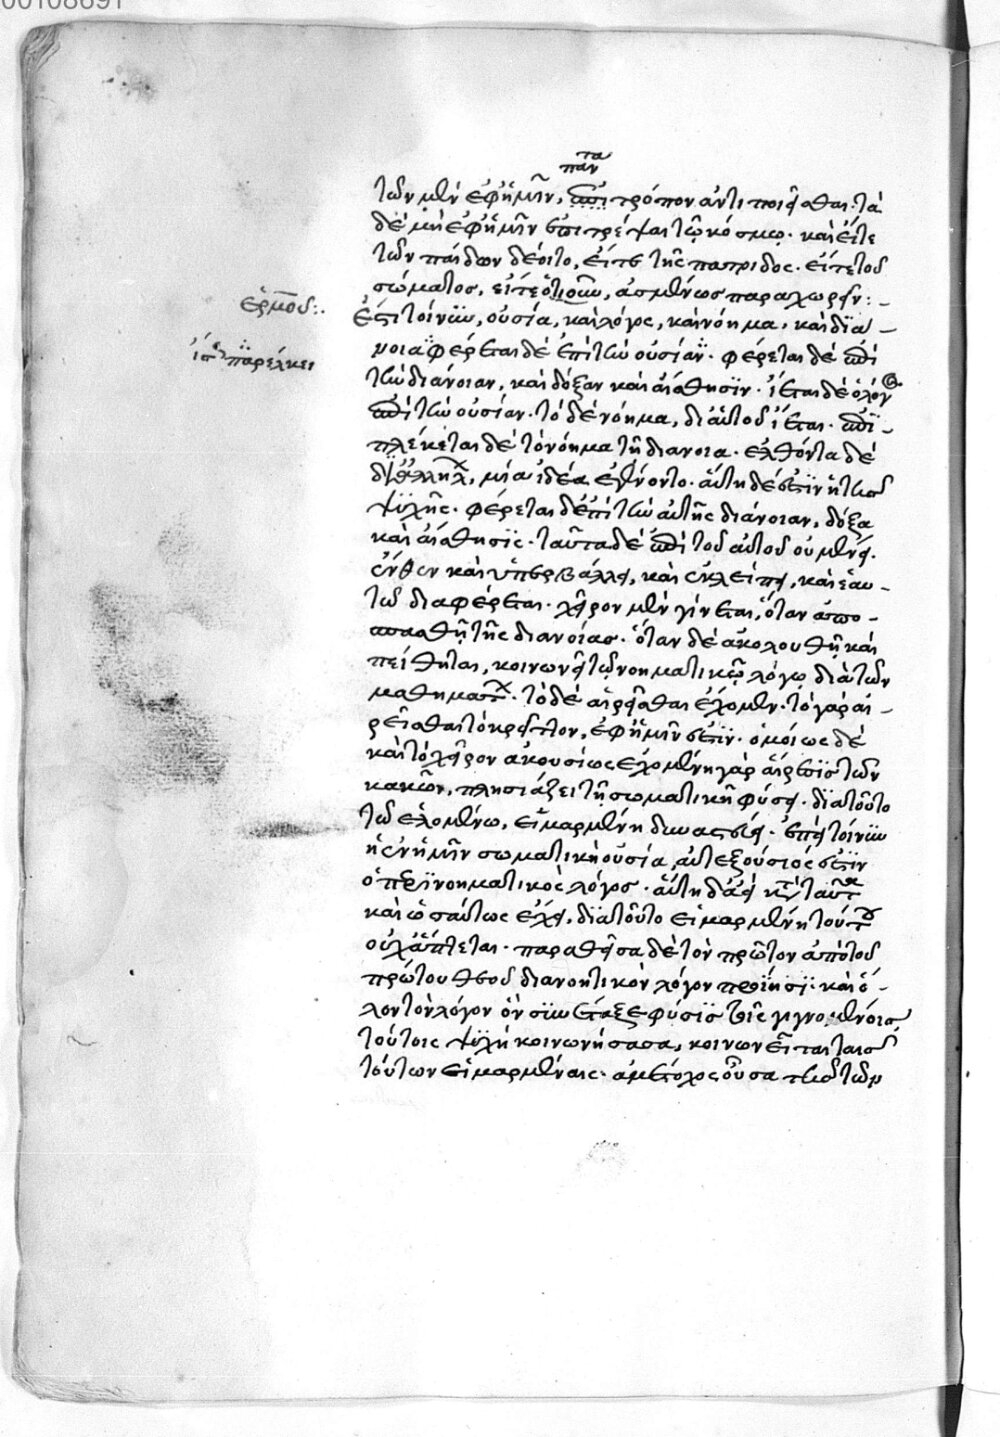 00108691
τα
παν
τῶν μὲν ἐφ' ἡμῖν, ἐπι τρόπον ἀντιποιεῖσθαι· τὰ
δὲ μὴ ἐφ' ἡμῖν ἐπιτρέψαι τῷ κόσμῳ. καὶ εἴτε
τῶν παίδων δέοιτο, εἴτε τῆς πατρίδος. εἴτε τοῦ
σώματος, εἴτε ὁτιοῦν, ἀσμένως παραχωρεῖν:-
ἑρμοῦ:.
Ἔστι τοίνυν, οὐσία, καὶ λόγος, καὶ νόημα, καὶ διά-
νοια φέρεται δὲ ἐπὶ τὴν οὐσίαν. φέρεται δὲ ἐπὶ
παρέλκει
τὴν διάνοιαν, καὶ δόξαν καὶ αἴσθησιν. ἵεται δὲ ὁ λόγος
ἐπὶ τὴν οὐσίαν. τὸ δὲ νόημα, δι' αὐτοῦ ἵεται. ἐπι-
πλέκεται δὲ τὸ νόημα τῇ διανοίᾳ. ἐλθόντα δὲ
δι' ἀλλήλων, μία ἰδέα ἐγένοντο. αὕτη δέ ἐστιν ἡ τῆς
ψυχῆς. φέρεται δὲ ἐπὶ τὴν αὐτῆς διάνοιαν, δόξα
καὶ αἴσθησις. ταῦτα δὲ ἐπὶ τοῦ αὐτοῦ οὐ μένει.
ἔνθεν καὶ ὑπερβάλλει, καὶ ἐκλείπει, καὶ ἑαυ-
τῷ διαφέρεται. χεῖρον μὲν γίνεται, ὅταν ἀπο-
σπασθῇ τῆς διανοίας. ὅταν δὲ ἀκολουθῇ καὶ
πείθηται, κοινωνεῖ τῷ νοηματικῷ λόγῳ διὰ τῶν
μαθημάτων. τὸ δὲ αἱρεῖσθαι ἔχομεν. τὸ γὰρ αἱ-
ρεῖσθαι τὸ κρεῖττον, ἐφ' ἡμῖν ἐστιν. ὁμοίως δὲ
καὶ τὸ χεῖρον ἀκουσίως ἐχομένη γὰρ αἵρεσις τῶν
κακῶν, πλησιάζει τῇ σωματικῇ φύσει. διὰ τοῦτο
τῷ ἑλομένῳ, εἱμαρμένη δυναστεύει. ἐπεὶ τοίνυν
ἡ ἐν ἡμῖν σωματικὴ οὐσία αὐτεξούσιός ἐστιν
ὁ περὶ νοηματικὸς λόγος. αὕτη δ' ἀεὶ κατὰ ταὐτὰ
καὶ ὡσαύτως ἔχει, διὰ τοῦτο εἱμαρμένη τούτου
οὐχ ἅπτεται. παραθεῖσα δὲ τὸν πρῶτον ἀπὸ τοῦ
πρώτου θεοῦ διανοητικὸν λόγον προΐησι· καὶ ὅ-
λον τὸν λόγον ὃν συνέταξε φύσις τοῖς γιγνομένοις.
τούτοις ψυχὴ κοινωνήσασα, κοινωνεῖ ταῖς
τούτων εἱμαρμέναις. ἀμέτοχος οὖσα τῆς τῶν